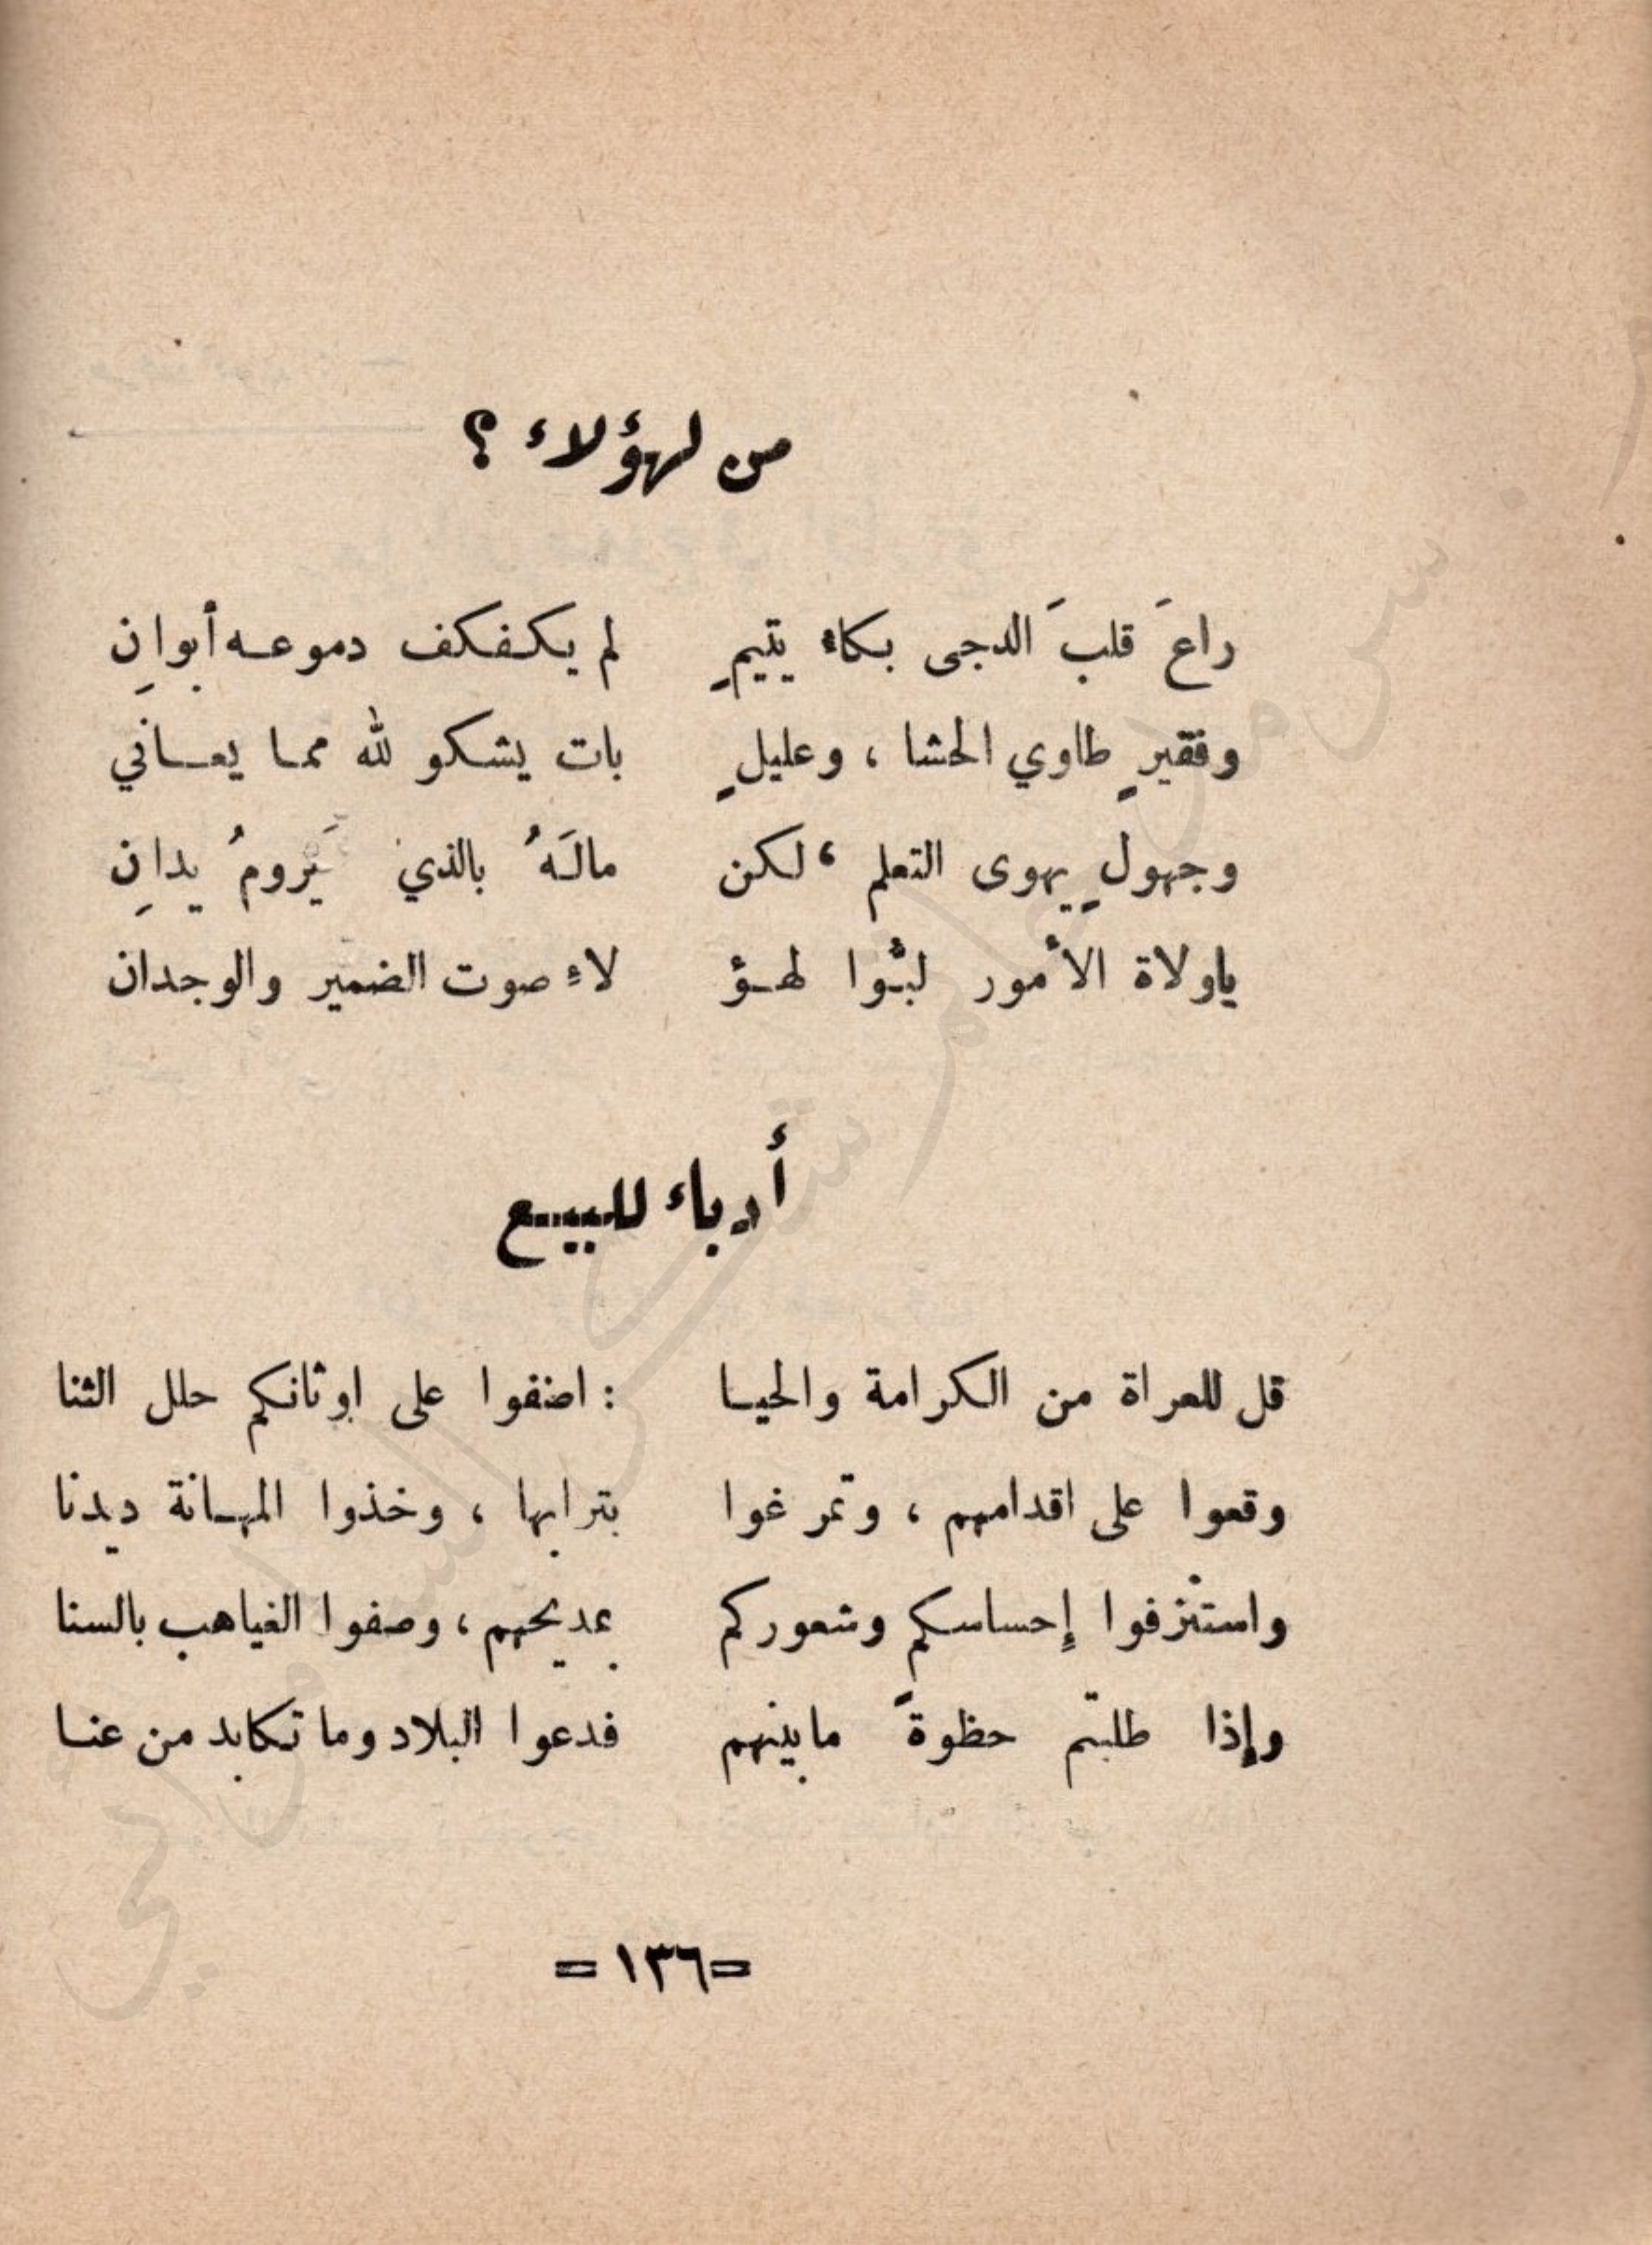 من لهؤلاء ؟
راعَ قلبَ الدجى بكاء يتيمٍ لم يكفكف دموعه أبوانِ
وفقيرٍ طاوي الحشا ، وعليلٍ بات يشكو لله مما يعاني
وجهولٍ يهوى التعلم ، لكن مالَهُ بالذي يَرومُ يدانِ
ياولاة الأمور لبّوا لهؤ لاءِ صوت الضمير والوجدان
أدباء للبيع
قل للعراة من الكرامة والحيا : اضفوا على اوثانكم حلل الثنا
وقعوا على اقدامهم ، وتمرغوا بترابها ، وخذوا المهانة ديدنا
واستنزفوا إحساسكم وشعوركم بمديحهم ، وصفوا الغياهب بالسنا
وإذا طلبتم حظوةً مابينهم فدعوا البلاد وما تكابد من عنا
= ١٣٦ =